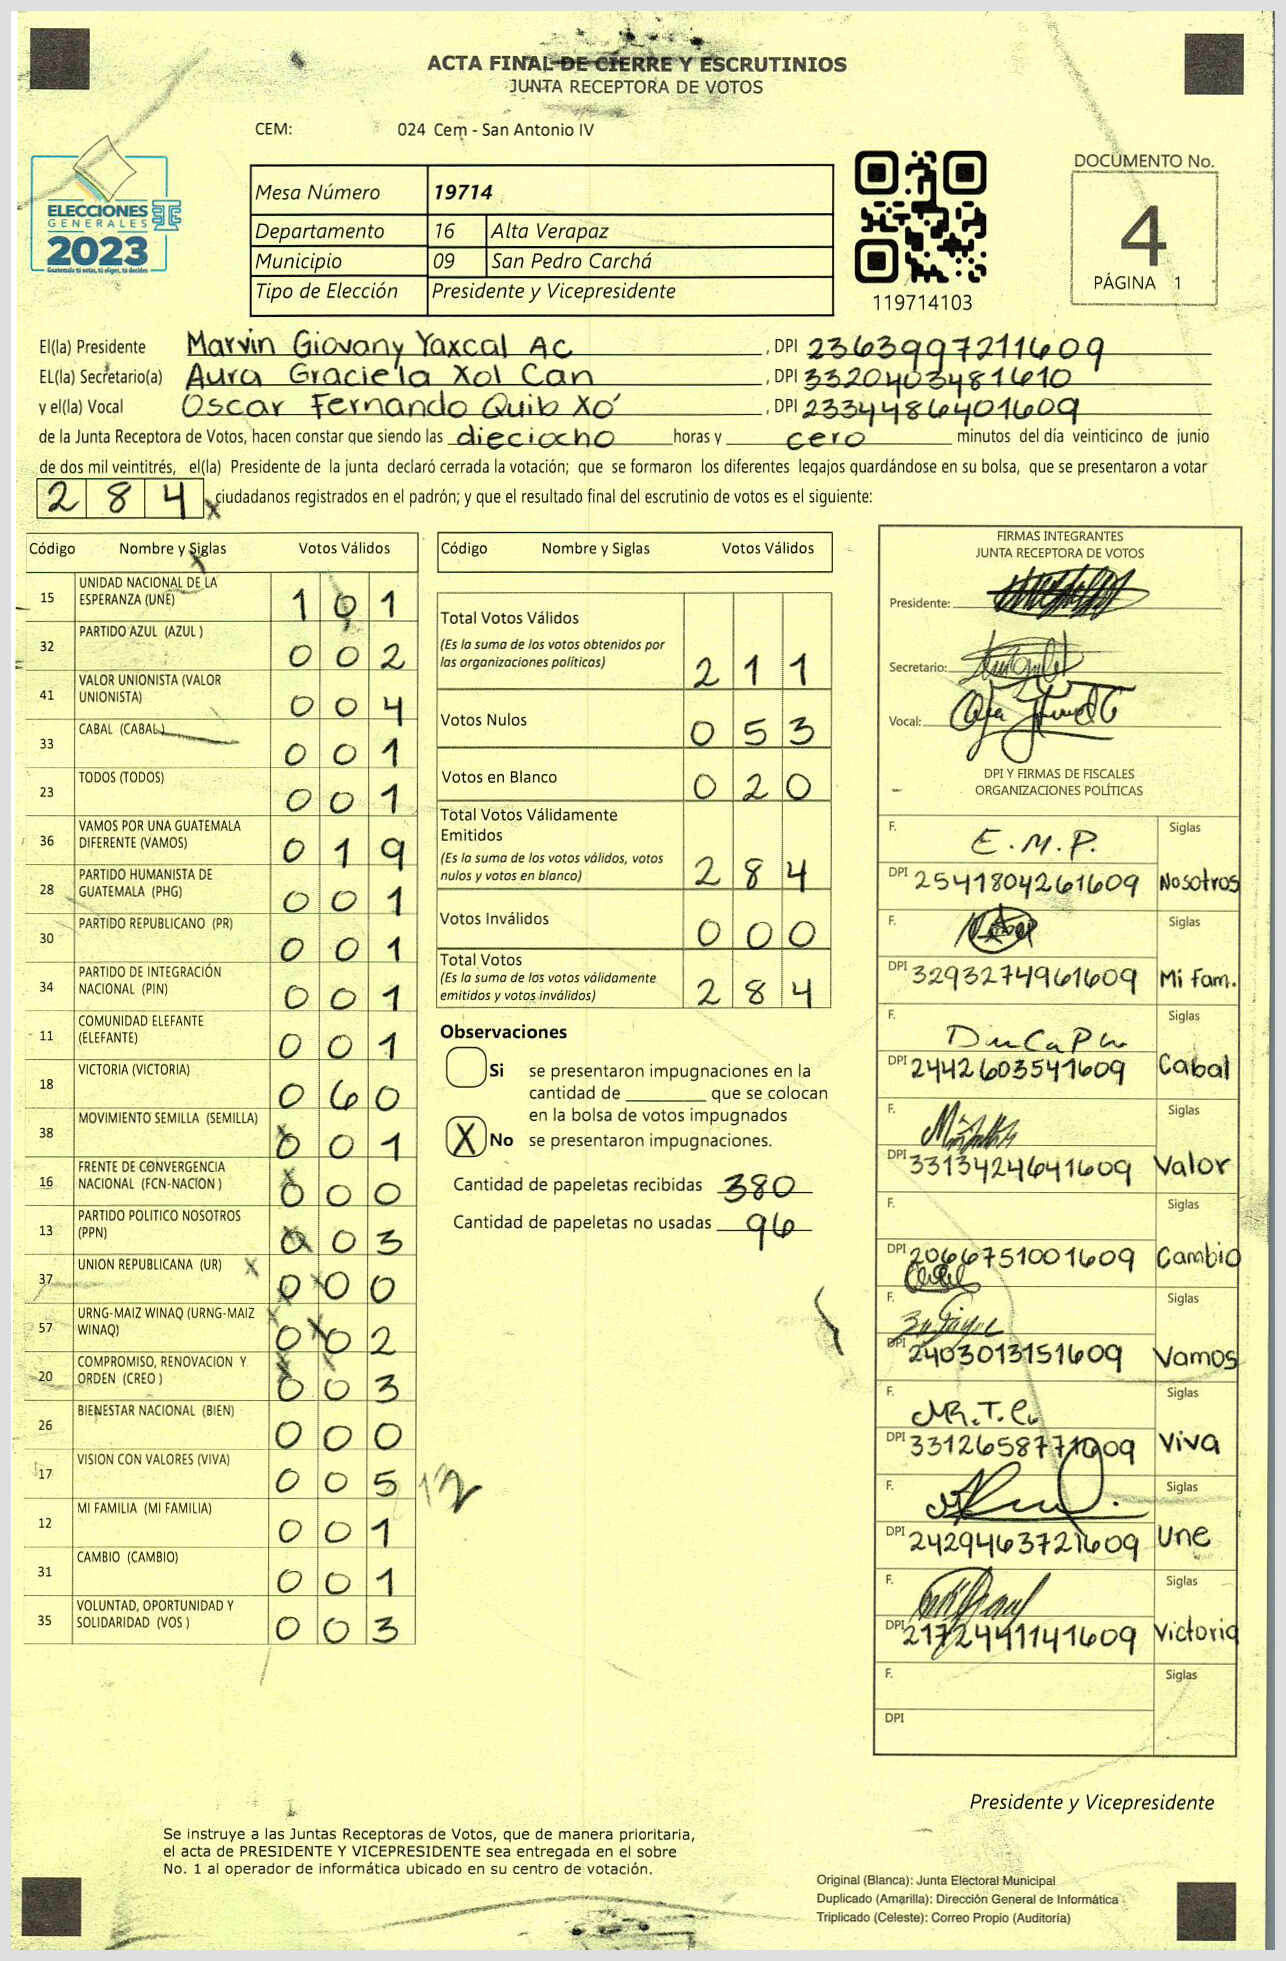 ACTA FINAL DE CIERRE Y ESCRUTINIOS
JUNTA RECEPTORA DE VOTOS
CEM: 024 Cem - San Antonio IV
ELECCIONES
GENERALES
2023
Guatemala tú votas, tú eliges, tú decides
Mesa Número 19714
Departamento 16 Alta Verapaz
Municipio 09 San Pedro Carchá
Tipo de Elección Presidente y Vicepresidente
119714103
DOCUMENTO No.
4
PÁGINA 1
El(la) Presidente Marvin Giovany Yaxcal Ac, DPI 2363997211609
EL(la) Secretario(a) Aura Graciela Xol Can, DPI 3320403481610
y el(la) Vocal Oscar Fernando Quib Xo', DPI 2334486401609
de la Junta Receptora de Votos, hacen constar que siendo las dieciocho horas y cero minutos del día veinticinco de junio
de dos mil veintitrés, el(la) Presidente de la junta declaró cerrada la votación; que se formaron los diferentes legajos quardándose en su bolsa, que se presentaron a votar
284 ciudadanos registrados en el padrón; y que el resultado final del escrutinio de votos es el siguiente:
Código Nombre y Siglas Votos Válidos
15 UNIDAD NACIONAL DE LA ESPERANZA (UNE) 101
32 PARTIDO AZUL (AZUL ) 002
41 VALOR UNIONISTA (VALOR UNIONISTA) 004
33 CABAL (CABAL ) 001
23 TODOS (TODOS) 001
36 VAMOS POR UNA GUATEMALA DIFERENTE (VAMOS) 019
28 PARTIDO HUMANISTA DE GUATEMALA (PHG) 001
30 PARTIDO REPUBLICANO (PR) 001
34 PARTIDO DE INTEGRACIÓN NACIONAL (PIN) 001
11 COMUNIDAD ELEFANTE (ELEFANTE) 001
18 VICTORIA (VICTORIA) 060
38 MOVIMIENTO SEMILLA (SEMILLA) 001
16 FRENTE DE CONVERGENCIA NACIONAL (FCN-NACION ) 000
13 PARTIDO POLITICO NOSOTROS (PPN) 003
37 UNION REPUBLICANA (UR) 000
57 URNG-MAIZ WINAQ (URNG-MAIZ WINAQ) 002
20 COMPROMISO, RENOVACION Y ORDEN (CREO ) 003
26 BIENESTAR NACIONAL (BIEN) 000
17 VISION CON VALORES (VIVA) 005 12
12 MI FAMILIA (MI FAMILIA) 001
31 CAMBIO (CAMBIO) 001
35 VOLUNTAD, OPORTUNIDAD Y SOLIDARIDAD (VOS ) 003
Código Nombre y Siglas Votos Válidos
Total Votos Válidos 211
(Es la suma de los votos obtenidos por
las organizaciones políticas)
Votos Nulos 053
Votos en Blanco 020
Total Votos Válidamente
Emitidos 284
(Es la suma de los votos válidos, votos
nulos y votos en blanco)
Votos Inválidos 000
Total Votos 284
(Es la suma de los votos válidamente
emitidos y votos inválidos)
Observaciones
Si se presentaron impugnaciones en la
cantidad de ________ que se colocan
en la bolsa de votos impugnados
X No se presentaron impugnaciones.
Cantidad de papeletas recibidas 380
Cantidad de papeletas no usadas 96
FIRMAS INTEGRANTES
JUNTA RECEPTORA DE VOTOS
Presidente:
Secretario:
Vocal:
DPI Y FIRMAS DE FISCALES
ORGANIZACIONES POLÍTICAS
F. E.M.P. Siglas
DPI 2541804261609 Nosotros
F. Siglas
DPI 3293274961609 Mi fam.
F. Siglas
DPI 2442603541609 Cabal
F. Siglas
DPI 3313424641609 Valor
F. Siglas
DPI 2066751001609 Cambio
F. Siglas
DPI 2403013151609 Vamos
F. Siglas
DPI 3312658771609 Viva
F. Siglas
DPI 2429463721609 Une
F. Siglas
DPI 2172441141609 Victoria
F. Siglas
DPI
Presidente y Vicepresidente
Se instruye a las Juntas Receptoras de Votos, que de manera prioritaria,
el acta de PRESIDENTE Y VICEPRESIDENTE sea entregada en el sobre
No. 1 al operador de informática ubicado en su centro de votación.
Original (Blanca): Junta Electoral Municipal
Duplicado (Amarilla): Dirección General de Informática
Triplicado (Celeste): Correo Propio (Auditoría)